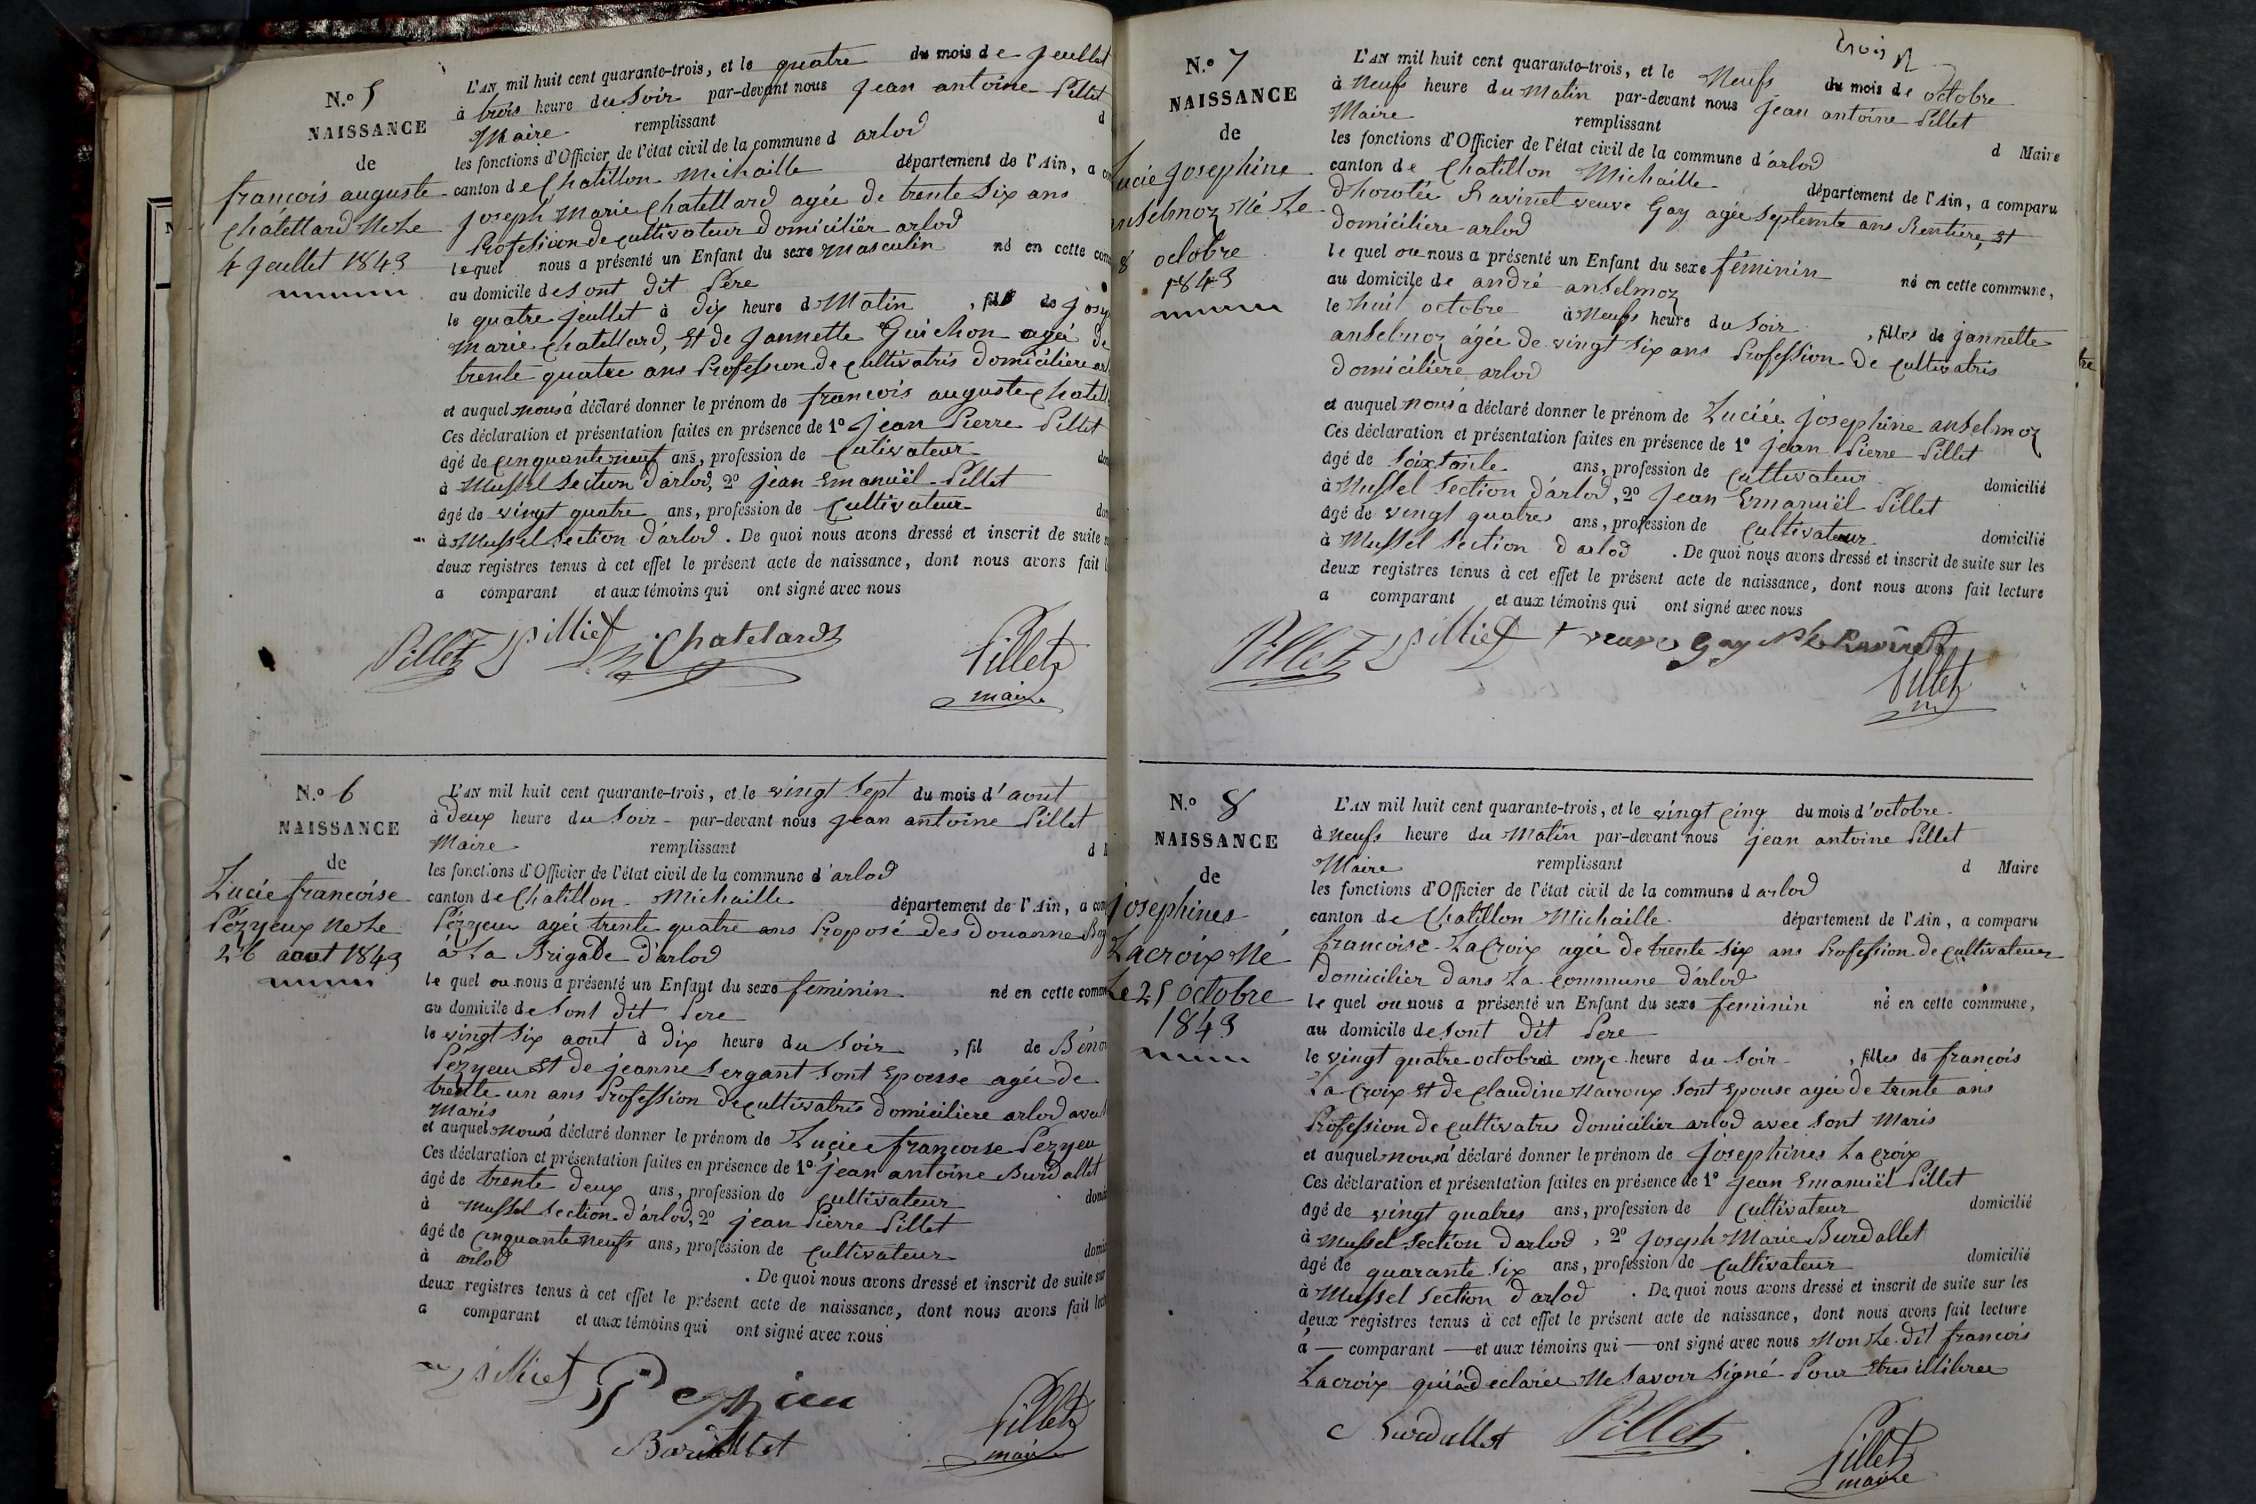 N.º 5
NAISSANCE
de
françois auguste
Chatellard Né Le
4 Jeuillet 1843
L'AN mil huit cent quarante-trois, et le quatre du mois de Jeuillet
à trois heure du Soir par-devant nous Jean antoine Pillet
Maire remplissant d
les fonctions d'Officier de l'état civil de la commune d arlod
canton de Chatillon Michaille département de l'Ain, a
joseph Marie Chatellard agée de trente Six ans
Profession de cultivateur domicilièr arlod
lequel nous a présenté un Enfant du sexe masculin né en cette
au domicile de Sont dit Pere
le quatre jeullet à Dix heure d Matin, fils de
Marie Chatellard, Et de Jannette Guichon agée de
trente quatre ans Profession de Cultivatris Domiciliere
et auquel nous à déclaré donner le prénom de françois auguste
Ces déclaration et présentation faites en présence de 1º Jean Pierre Pillet
âgé de cinquante neuf ans, profession de Cultivateur
à Mussel Section d'arlod, 2º Jean Emanuël Pillet
âgé de vingt quatre ans, profession de Cultivateur
à Mussel Section d'arlod. De quoi nous avons dressé et inscrit de suite
deux registres tenus à cet effet le présent acte de naissance, dont nous avons fait
a comparant et aux témoins qui ont signé avec nous
Pillet Pilliet Chatelard Pillet
maire
N.º 6
NAISSANCE
de
Lucie francoise
Pézyeux Né Le
26 aout 1843
L'AN mil huit cent quarante-trois, et le vingt Sept du mois d'aout
à Deux heure du Soir par-devant nous Jean antoine Pillet
Maire remplissant d
les fonctions d'Officier de l'état civil de la commune d'arlod
canton de Chatillon Michaille département de l'Ain, a
Pézyeux agée trente quatre ans Proposé Des Douanne
à La Brigade d'arlod
le quel ou nous a présenté un Enfant du sexe feminin né en cette
au domicile de Sont Dit Pere
le vingt Six aout à dix heure du Soir, fil de
Pezyeux Et de jeanne Sergant Sont Epousse agée de
trente un ans Profession de cultivatris Domiciliere arlod
Maris
et auquel nous à déclaré donner le prénom de Luciee françoise Pezyeu
Ces déclaration et présentation faites en présence de 1º jean antoine Burdallet
âgé de trente Deux ans, profession de Cultivateur
à Mussel Section d'arlod, 2º jean Pierre Pillet
âgé de Cinquante Neufs ans, profession de Cultivateur
à arlod. De quoi nous avons dressé et inscrit de suite sur
deux registres tenus à cet effet le présent acte de naissance, dont nous avons fait
a comparant et aux témoins qui ont signé avec nous
Pilliet Pezieu
Burdallet
Pillet
maire
trois
N.º 7
NAISSANCE
de
Lucie Josephine
anselmoz Né Le
8 octobre
1843
L'AN mil huit cent quarante-trois, et le Neufs du mois de octobre
à Neufs heure du Matin par-devant nous Jean antoine Pillet
Maire remplissant d Maire
les fonctions d'Officier de l'état civil de la commune d'arlod
canton de Chatillon Michaille département de l'Ain, a comparu
Dhorotée Ravinet veuve Gay agée Septente ans Rentière, Et
domiciliere arlod
le quel ou nous a présenté un Enfant du sexe féminin né en cette commune,
au domicile de andré anselmoz
le huit octobre à Neufs heure du Soir, filles de jannette
anselmoz agée de vingt Six ans Profession De Cultivatris
domiciliere arlod
et auquel nous à déclaré donner le prénom de Luciée Josephine anselmoz
Ces déclaration et présentation faites en présence de 1º Jean Pierre Pillet
âgé de Soixtante ans, profession de Cultivateur domicilié
à Mussel Section d'arlod, 2º Jean Emanuël Pillet
âgé de vingt quatres ans, profession de Cultivateur domicilié
à Mussel Section d arlod. De quoi nous avons dressé et inscrit de suite sur les
deux registres tenus à cet effet le présent acte de naissance, dont nous avons fait lecture
a comparant et aux témoins qui ont signé avec nous
Pillet Pilliet veuve Gay Ravinet
Pillet
N.º 8
NAISSANCE
de
josephines
Lacroix Né
Le 25 octobre
1843
L'AN mil huit cent quarante-trois, et le vingt Cinq du mois d'octobre
à Neufs heure du Matin par-devant nous jean antoine Pillet
Maire remplissant d Maire
les fonctions d'Officier de l'état civil de la commune d arlod
canton de Chatillon Michaille département de l'Ain, a comparu
françoise LaCroix agée de trente Six ans Profession de Cultivateur
domicilier dans La Commune d'arlod
le quel ou nous a présenté un Enfant du sexe feminin né en cette commune,
au domicile de Sont dit Pere
le vingt quatre octobre à onze heure du Soir, filles de françois
La Croix Et de Claudine Sont Epouse agée de trente ans
Profession de Cultivatris domicilièr arlod avec Sont Maris
et auquel nous à déclaré donner le prénom de Josephines La Croix
Ces déclaration et présentation faites en présence de 1º Jean Emanuël Pillet
âgé de vingt quatres ans, profession de Cultivateur domicilié
à Mussel Section d arlod, 2º Joseph Marie Burdallet
âgé de quarante Six ans, profession de Cultivateur domicilié
à Mussel Section d arlod. De quoi nous avons dressé et inscrit de suite sur les
deux registres tenus à cet effet le présent acte de naissance, dont nous avons fait lecture
à — comparant — et aux témoins qui — ont signé avec nous Non Le dit françois
Lacroix qui à declarée Ne Savoir Signé Pour Etres illiteree
Burdallet Pillet
Pillet
maire